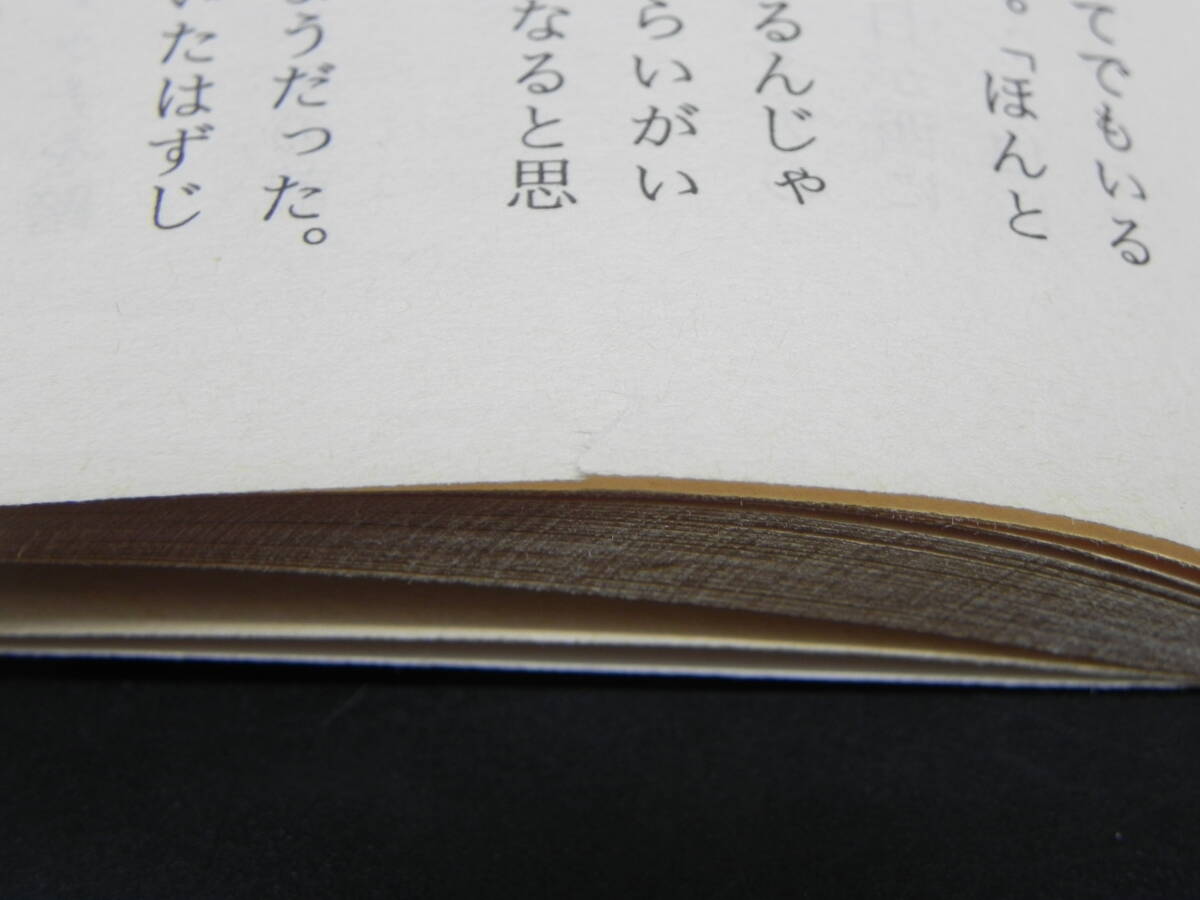 てでもいる
。「ほんと
るんじゃ
らいがい
なると思
うだった。
たはずじ